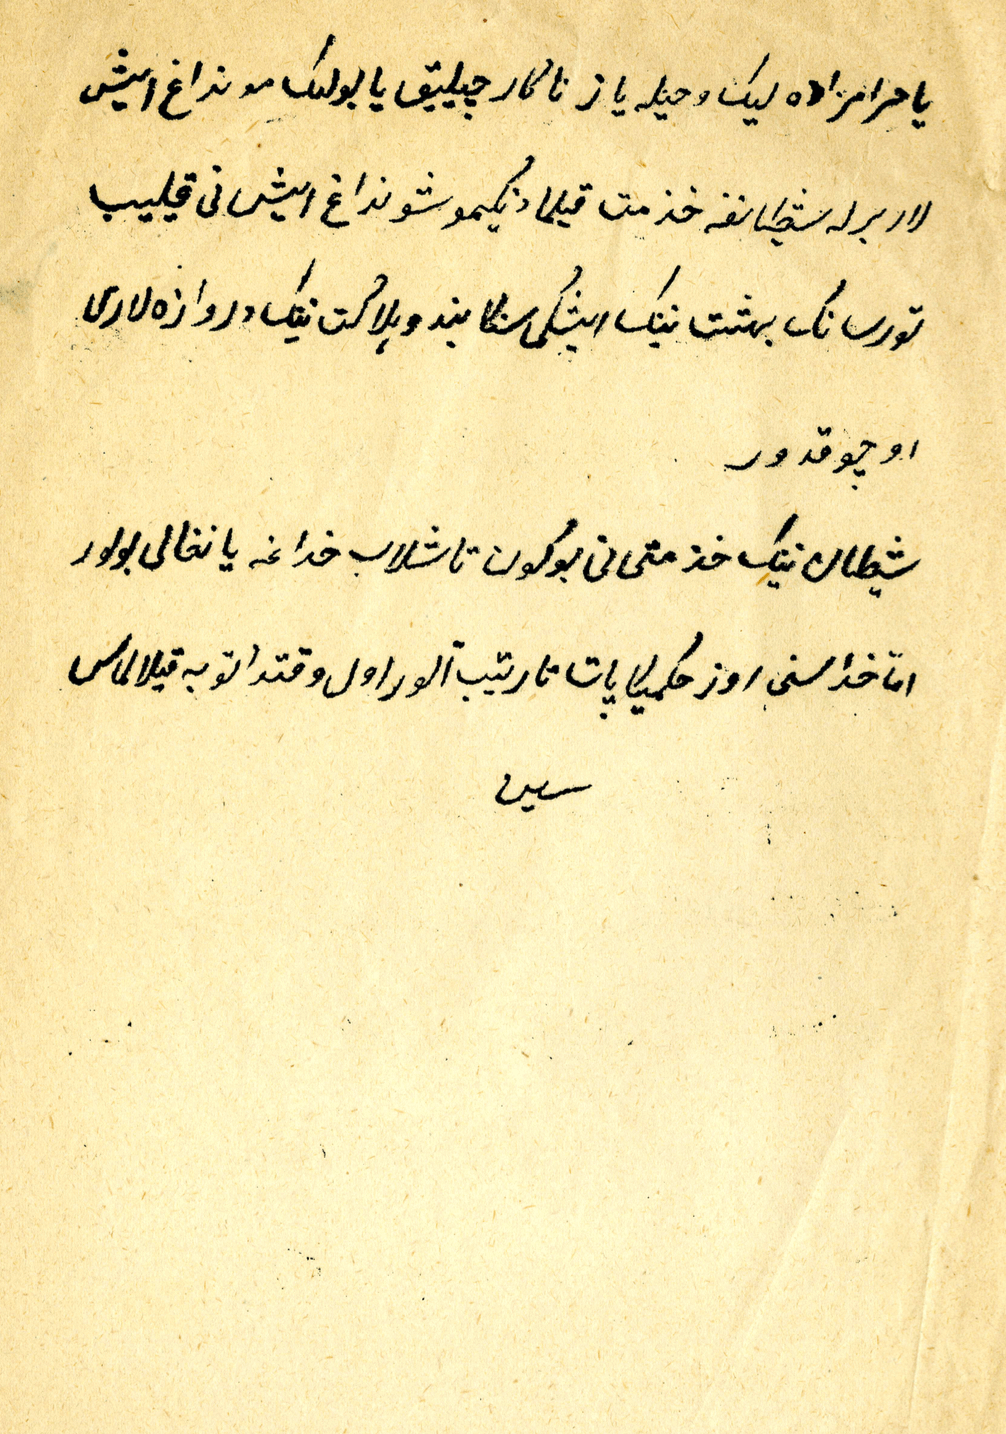 یا حرامزاده لیک و حیله یا زناکار چیلیق یا بولک مونداغ ایش
لار برله شیطانغه خذمت قیلمادینکیمو شونداغ ایش نی قیلیب
تورسانک بهشت نینک ایشکی سنکا بند و هلاکت نینک دروازه لاری
اوچوقدور
شیطان نینک خذمتی نی بوکون تاشلاب خداغه یانغالی بولور
امّا خدا سنی اوز حکمیکا پات تارتیب آلور اول وقتدا توبه قیلالماس
سین